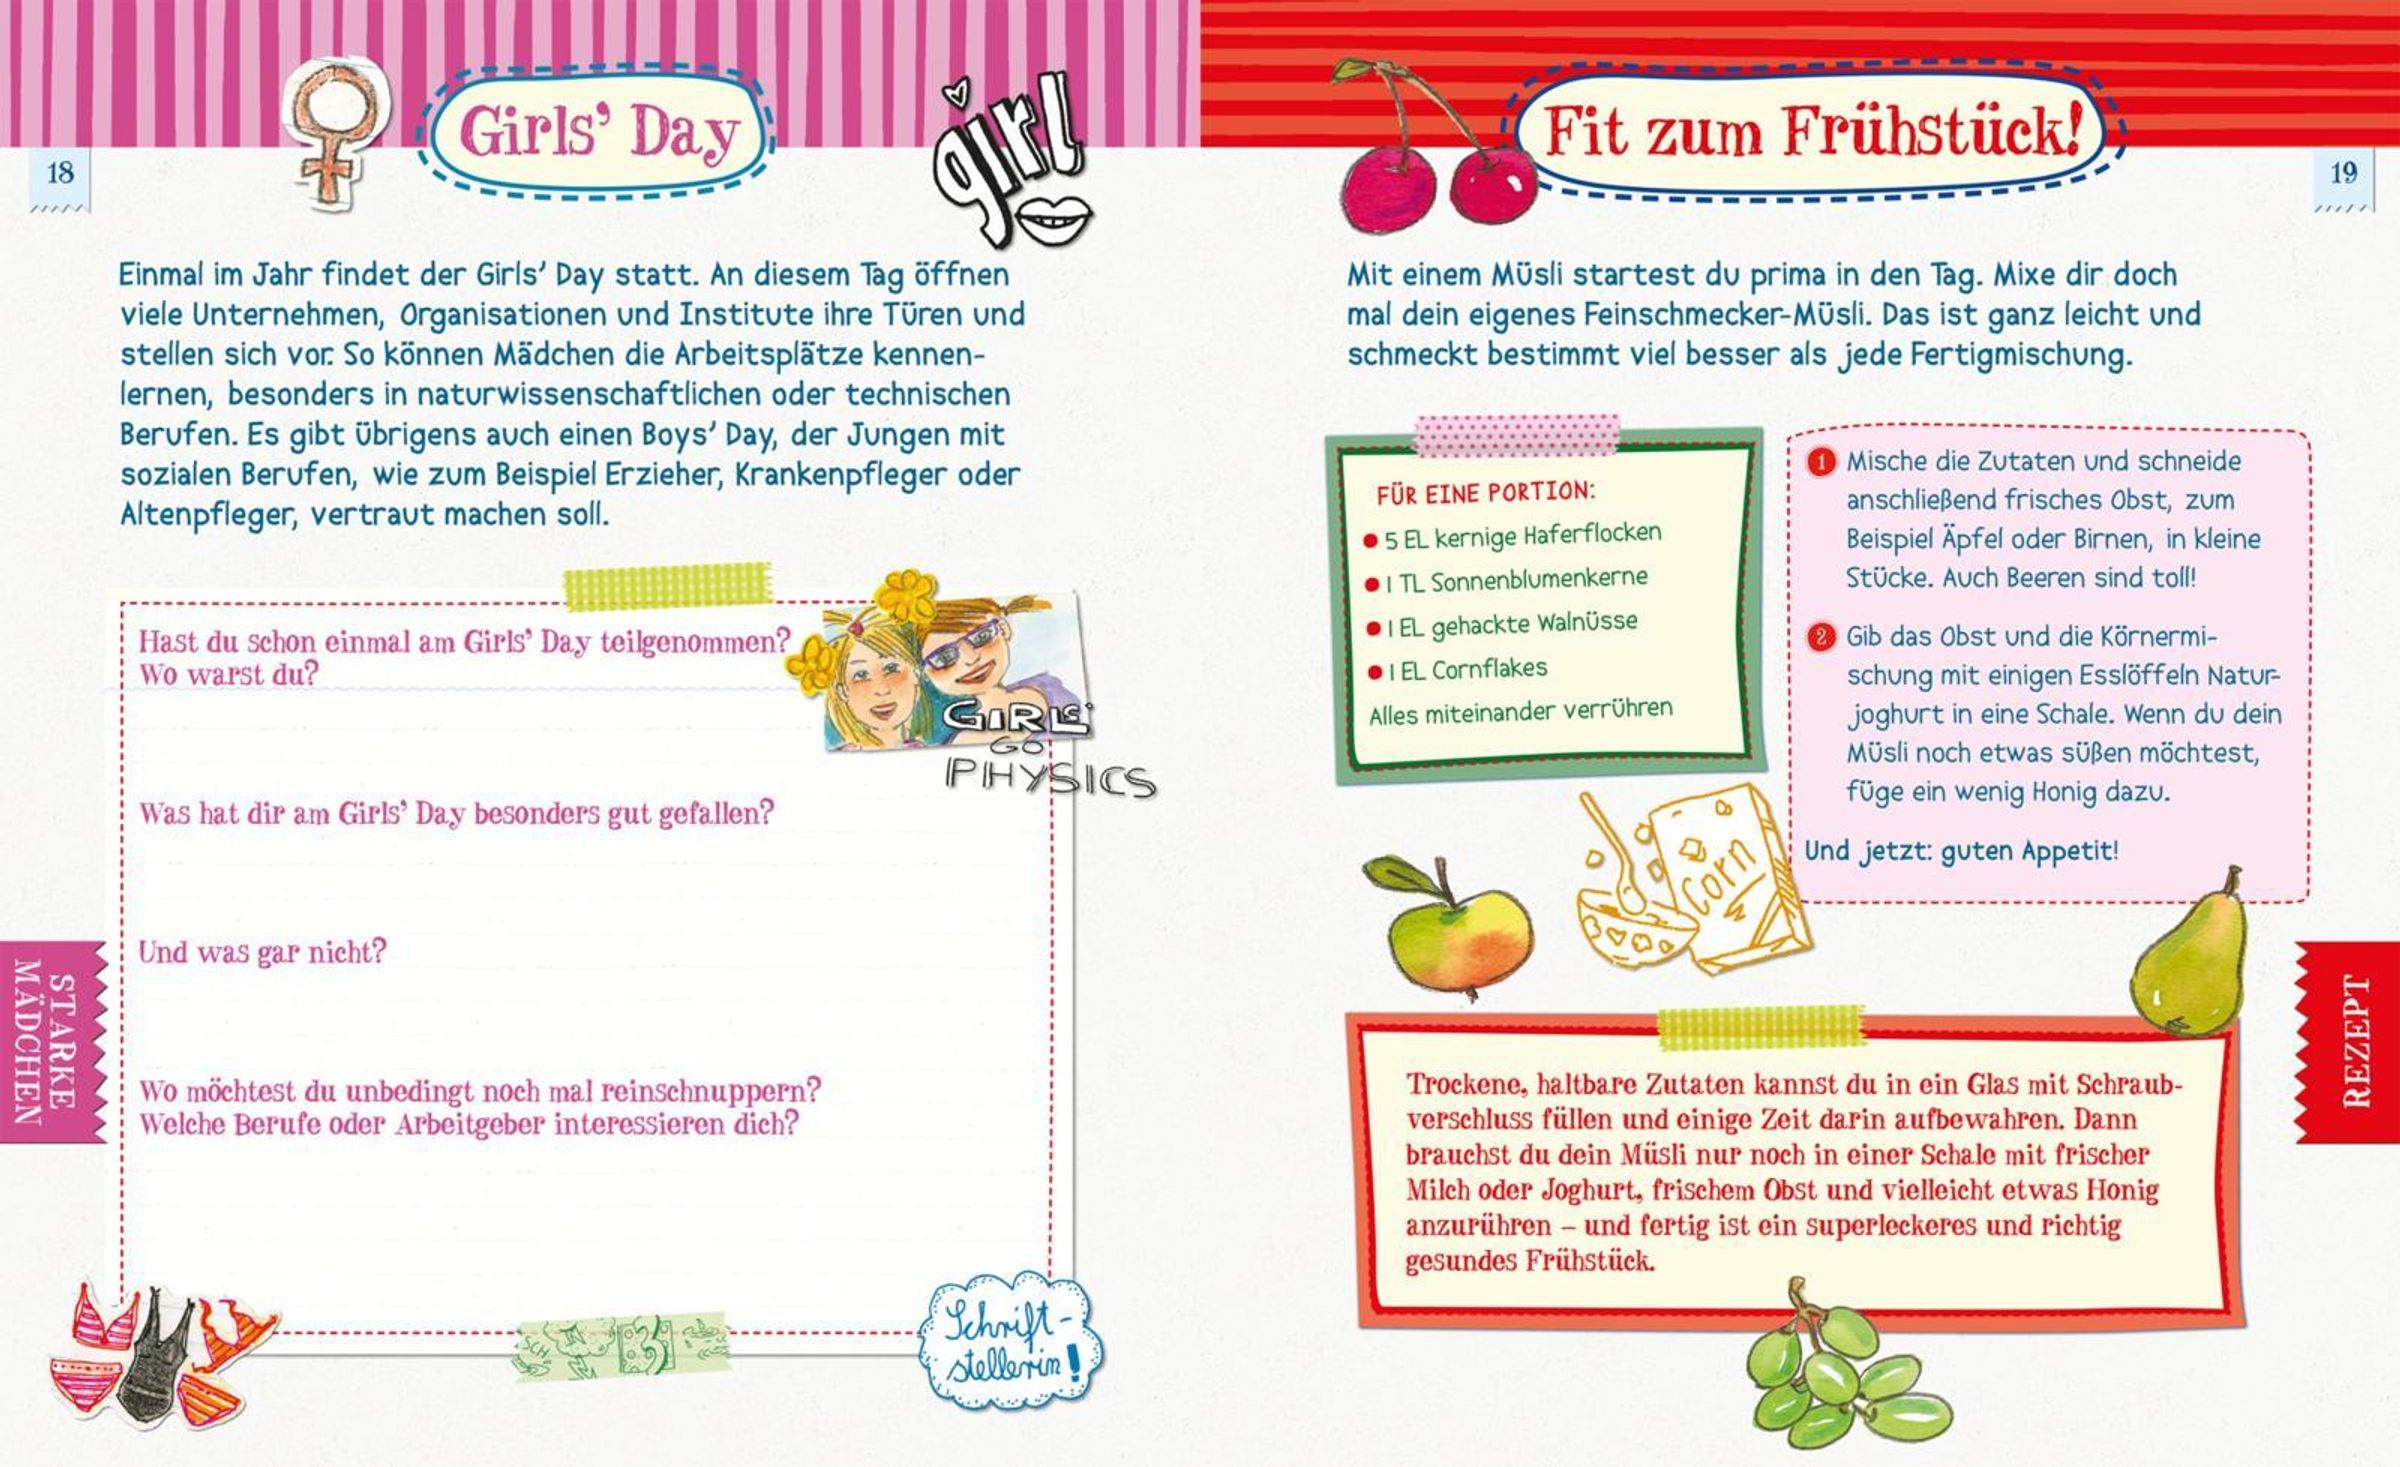 18
Girls' Day
girl
Einmal im Jahr findet der Girls' Day statt. An diesem Tag öffnen
viele Unternehmen, Organisationen und Institute ihre Türen und
stellen sich vor. So können Mädchen die Arbeitsplätze kennen-
lernen, besonders in naturwissenschaftlichen oder technischen
Berufen. Es gibt übrigens auch einen Boys' Day, der Jungen mit
sozialen Berufen, wie zum Beispiel Erzieher, Krankenpfleger oder
Altenpfleger, vertraut machen soll.
Hast du schon einmal am Girls' Day teilgenommen?
Wo warst du?
GIRLS'
GO
PHYSICS
Was hat dir am Girls' Day besonders gut gefallen?
Und was gar nicht?
Wo möchtest du unbedingt noch mal reinschnuppern?
Welche Berufe oder Arbeitgeber interessieren dich?
STARKE
MÄDCHEN
Schrift-
stellerin!
19
Fit zum Frühstück!
Mit einem Müsli startest du prima in den Tag. Mixe dir doch
mal dein eigenes Feinschmecker-Müsli. Das ist ganz leicht und
schmeckt bestimmt viel besser als jede Fertigmischung.
FÜR EINE PORTION:
• 5 EL kernige Haferflocken
• 1 TL Sonnenblumenkerne
• 1 EL gehackte Walnüsse
• 1 EL Cornflakes
Alles miteinander verrühren
1 Mische die Zutaten und schneide
anschließend frisches Obst, zum
Beispiel Äpfel oder Birnen, in kleine
Stücke. Auch Beeren sind toll!
2 Gib das Obst und die Körnermi-
schung mit einigen Esslöffeln Natur-
joghurt in eine Schale. Wenn du dein
Müsli noch etwas süßen möchtest,
füge ein wenig Honig dazu.
Und jetzt: guten Appetit!
Corn
Trockene, haltbare Zutaten kannst du in ein Glas mit Schraub-
verschluss füllen und einige Zeit darin aufbewahren. Dann
brauchst du dein Müsli nur noch in einer Schale mit frischer
Milch oder Joghurt, frischem Obst und vielleicht etwas Honig
anzurühren – und fertig ist ein superleckeres und richtig
gesundes Frühstück.
REZEPT